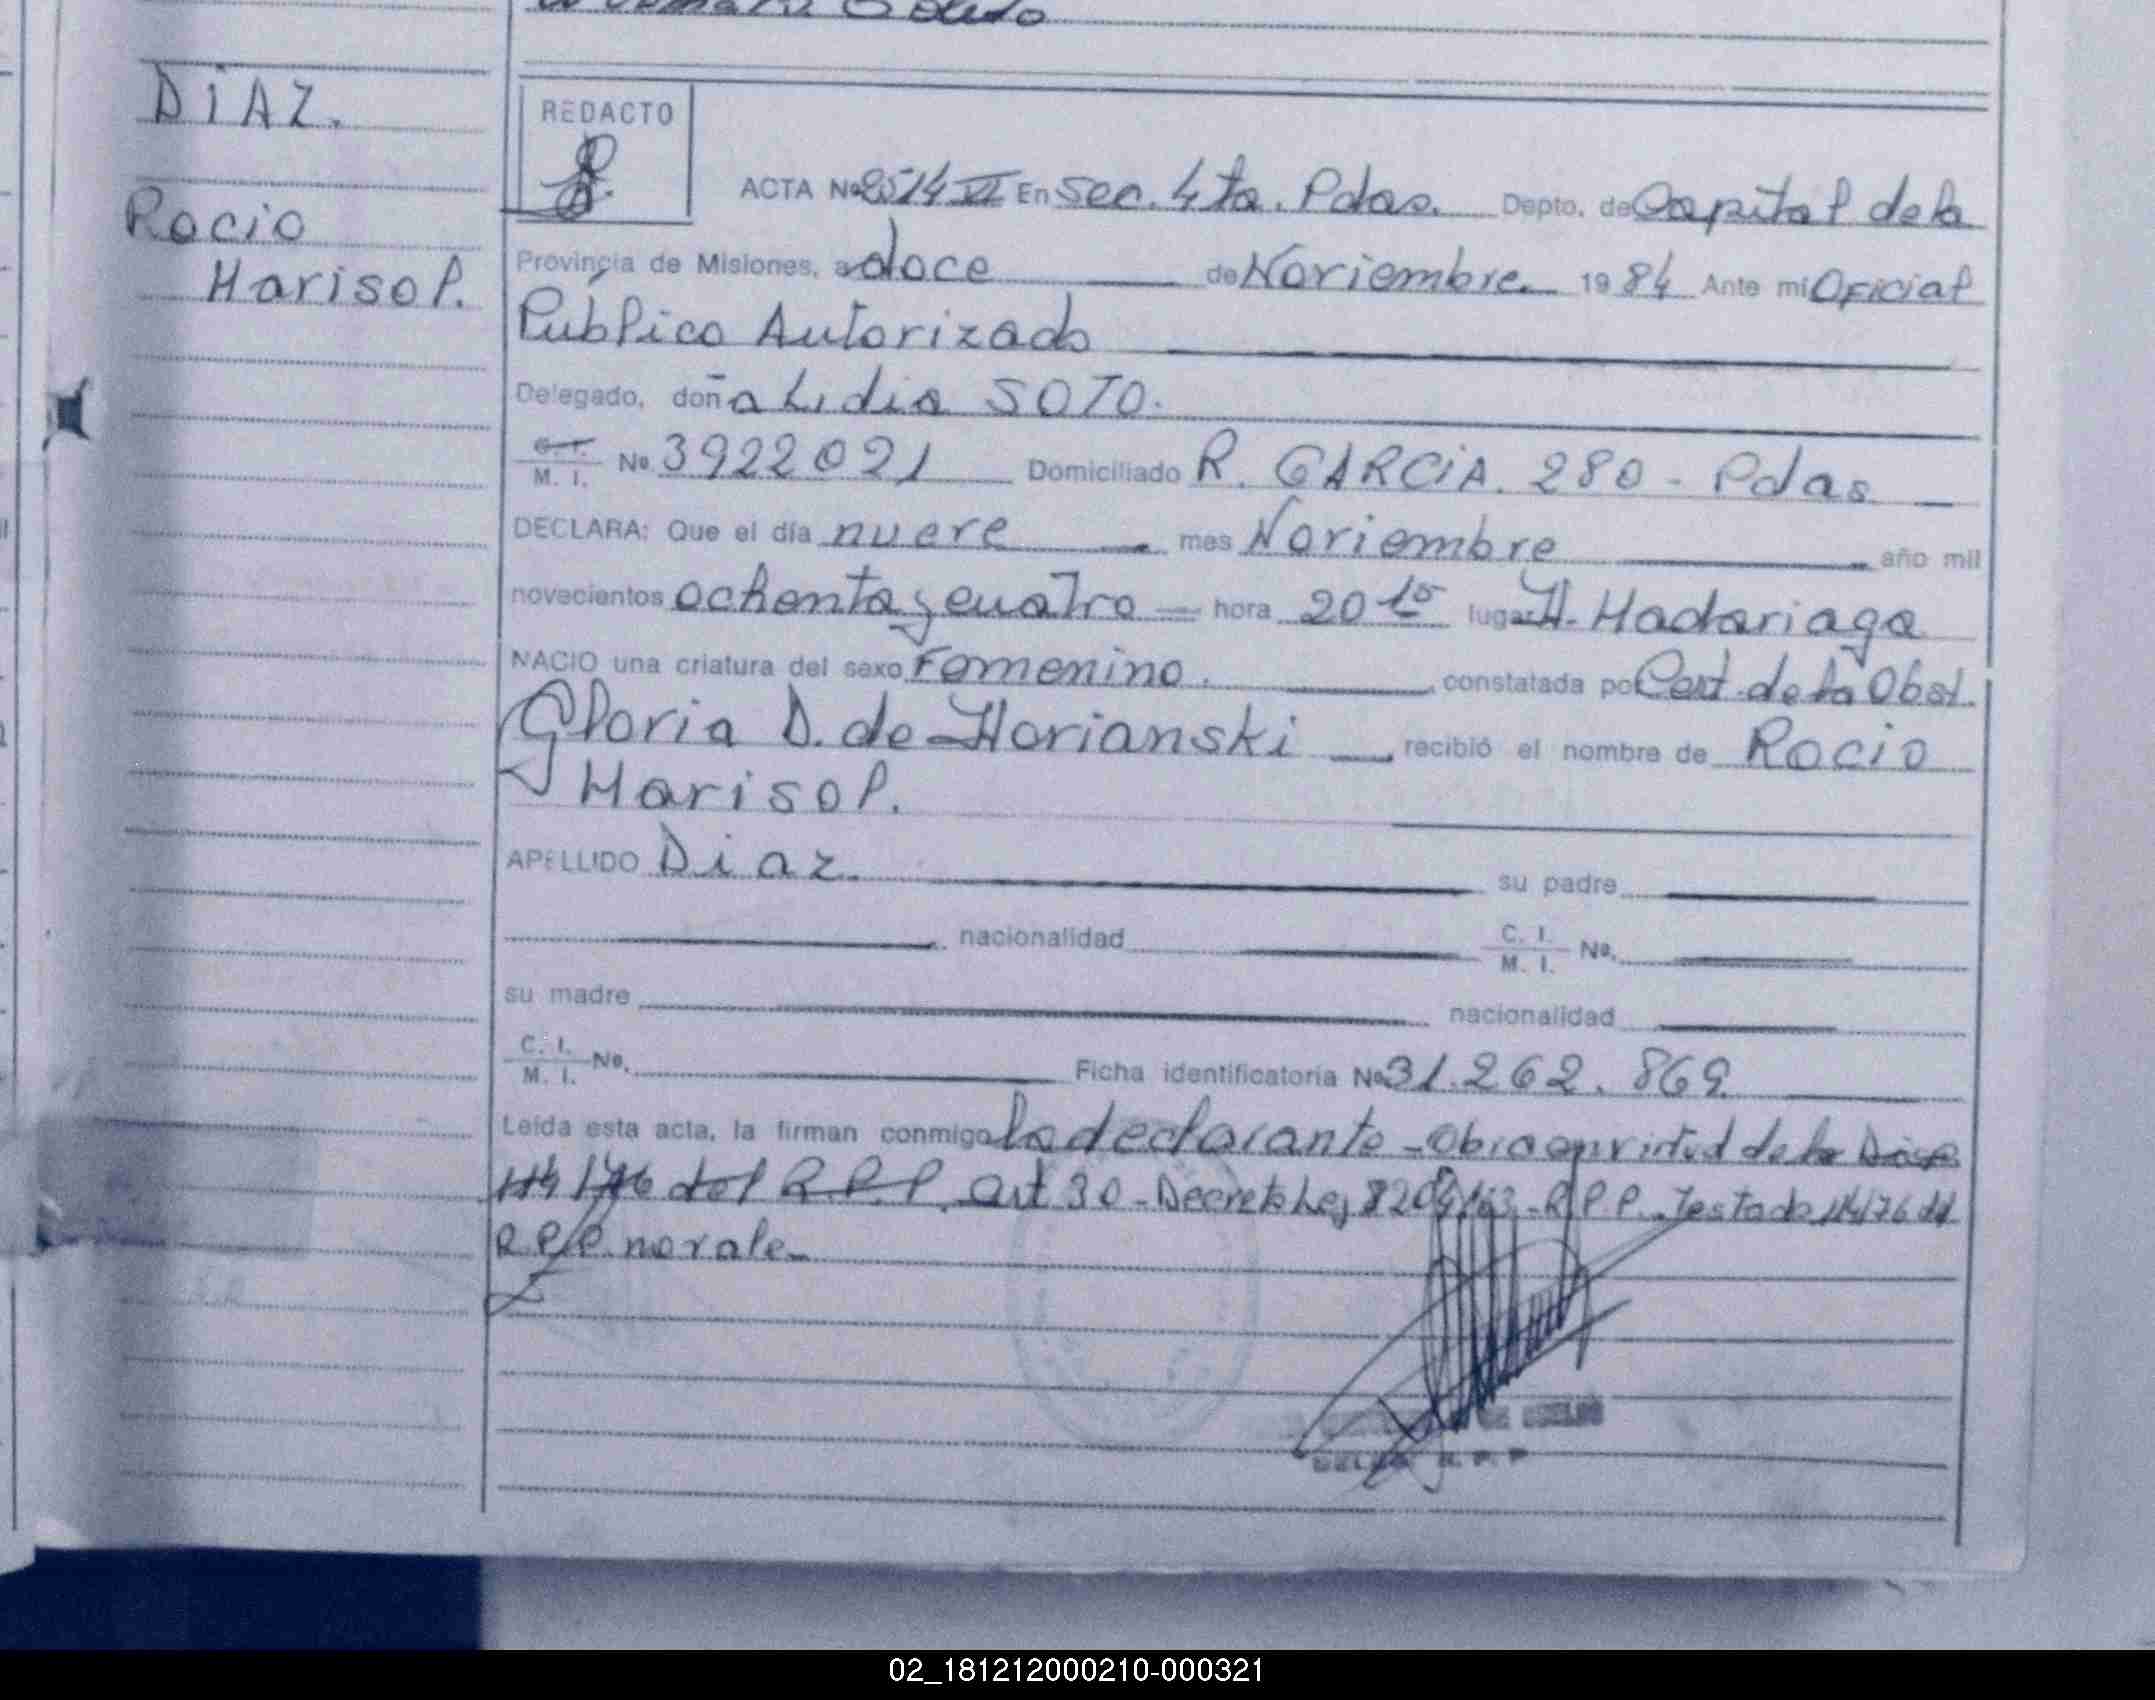 DiAZ.
Rocio
Marisol.
REDACTO
ACTA No 2514 VI En Sec. 4ta. Pdas. Depto. de Capital de la
Provincia de Misiones, a doce de Noviembre. 19 84 Ante mi Oficial
Publico Autorizado
Delegado, doña Lidia SOTO.
C. I. / M. I. No. 3922021 Domiciliado R. GARCiA. 280 - Pdas
DECLARA: Que el día nueve mes Noviembre año mil
novecientos ochenta y cuatro hora 20 15 lugar H. Madariaga
NACIO una criatura del sexo Femenino. constatada por Cert. de la Obst.
Gloria D. de Morianski recibió el nombre de Rocio
Marisol.
APELLIDO Diaz. su padre
nacionalidad C. I. / M. I. No.
su madre nacionalidad
C. I. / M. I. No. Ficha identificatoria No 31.262.869
Leída esta acta, la firman conmigo la declarante - Obra en virtud de la Disp
114/76 del R.P.P. Art 30 - Decreto Ley 8204/63 - R.P.P. Testado 114/76 del
R.P.P. no vale.
R. P. P
02_181212000210-000321